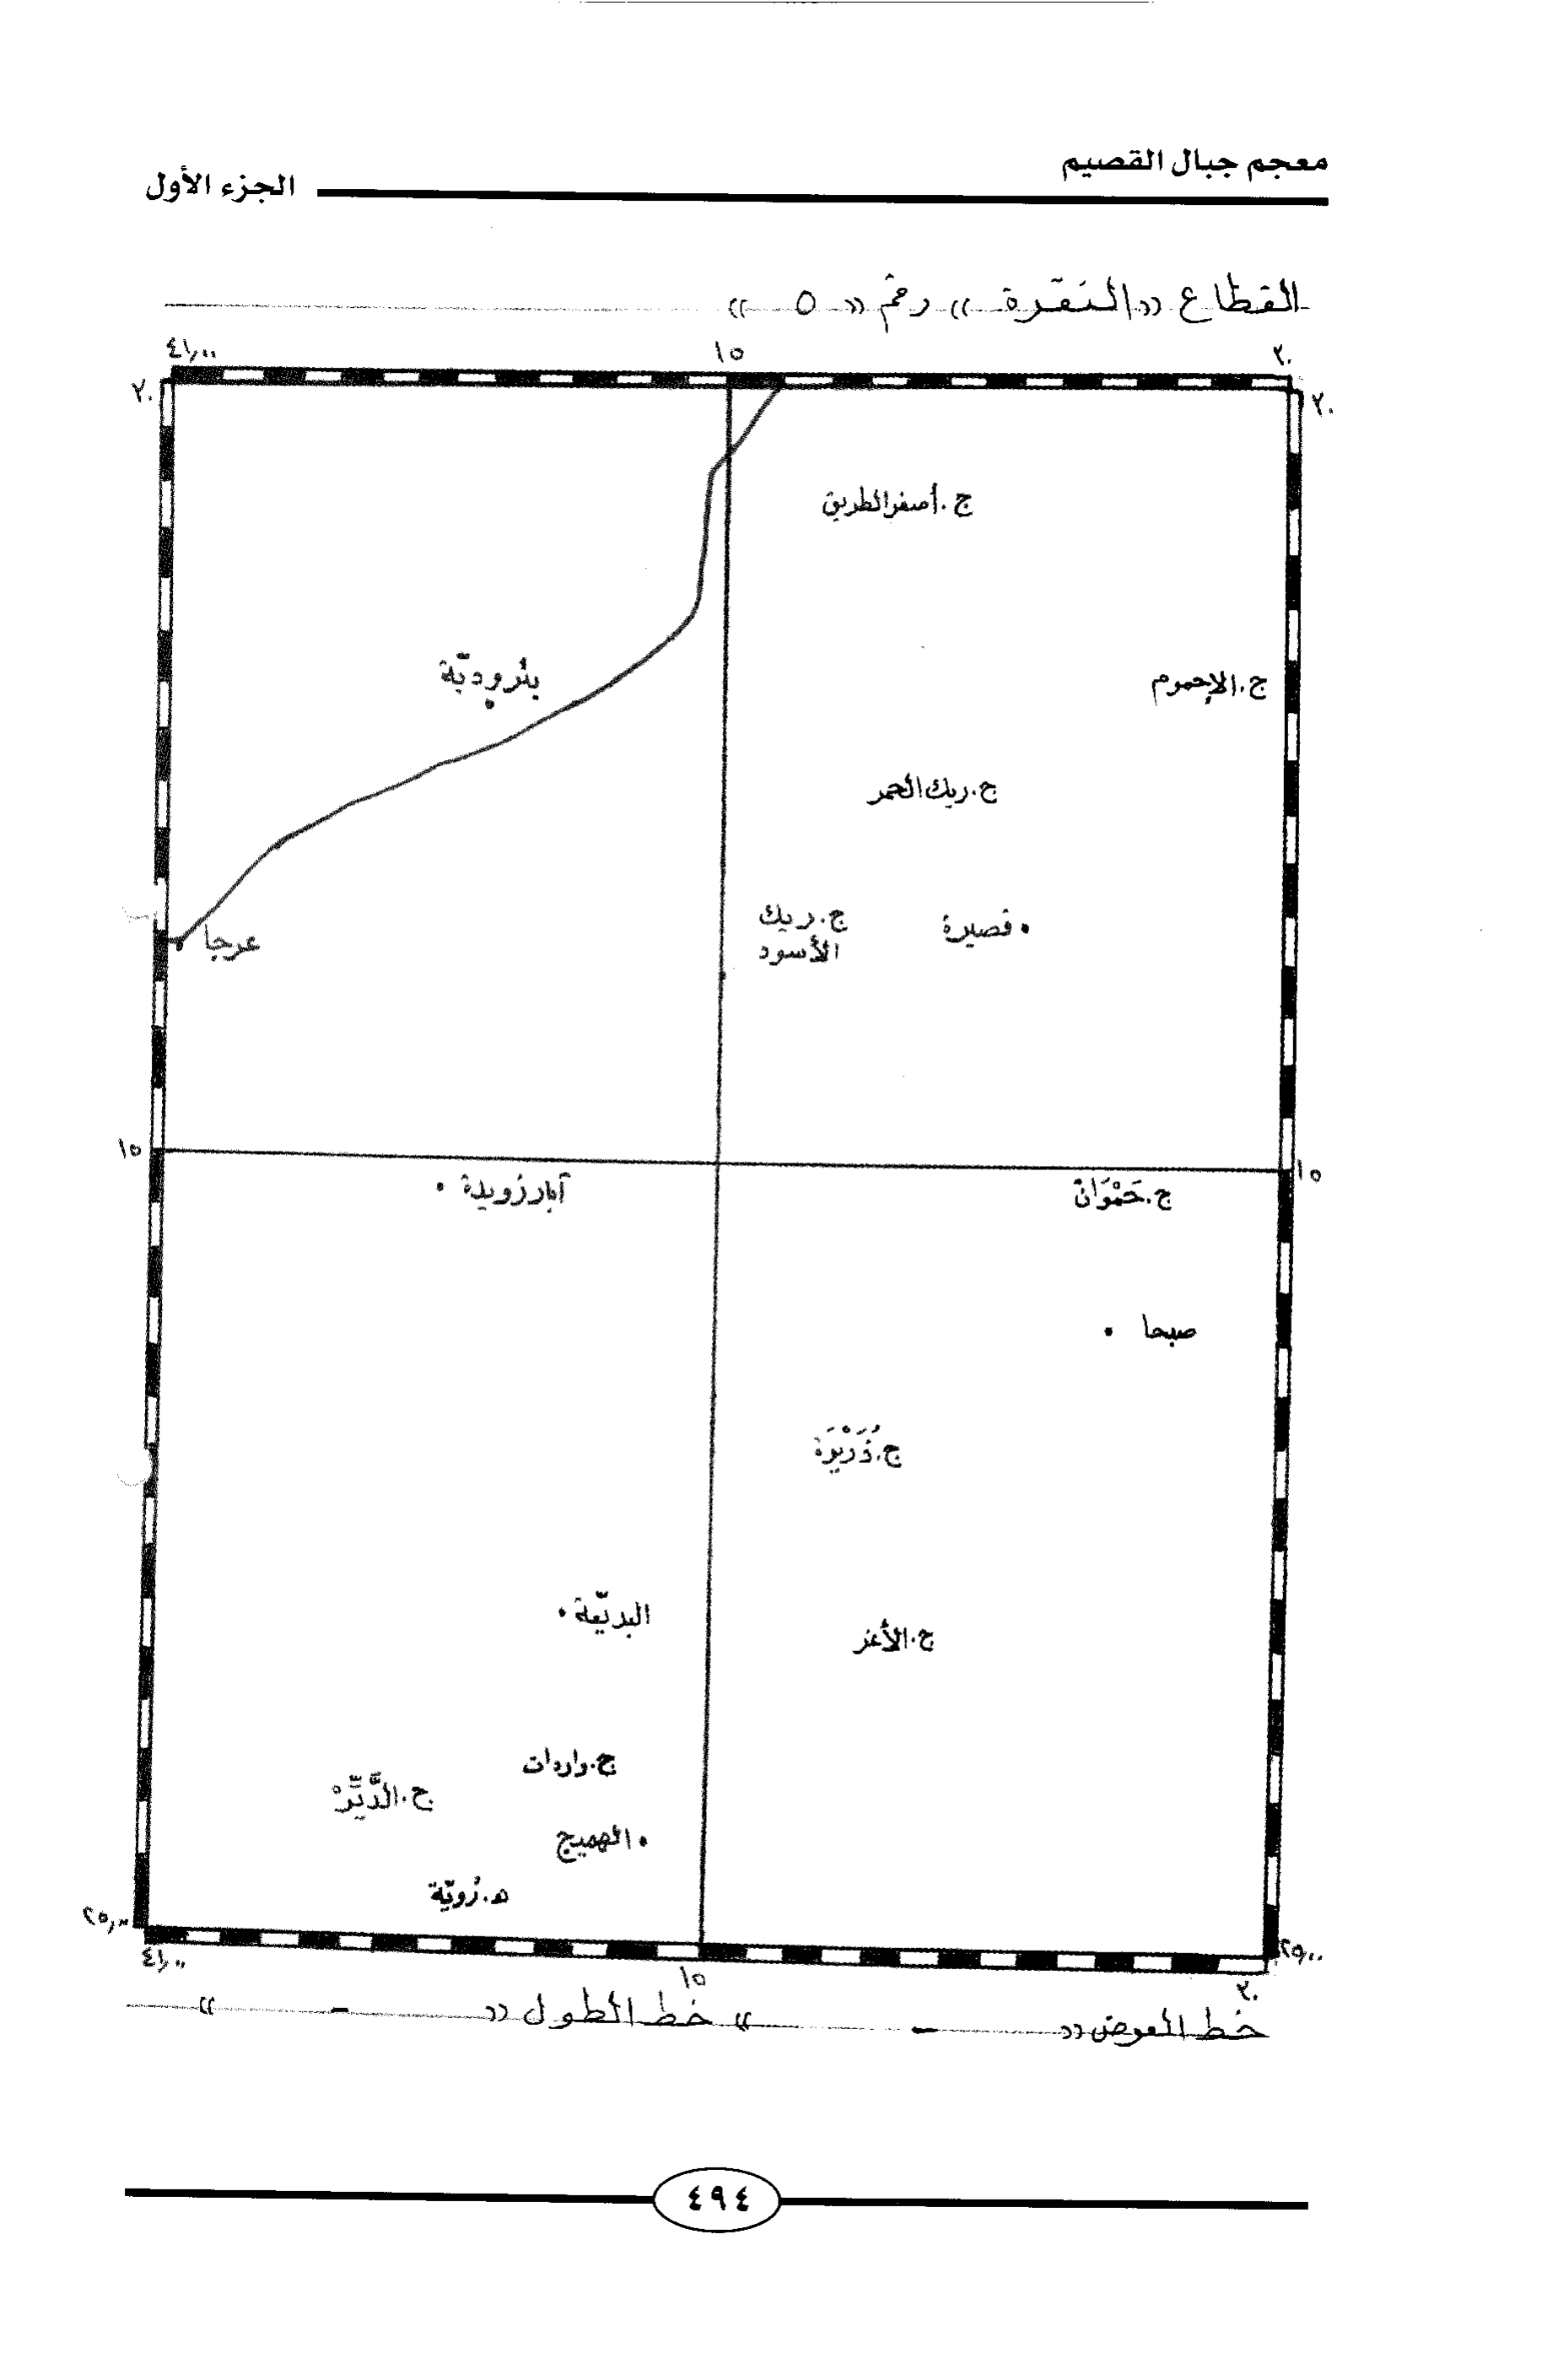 معجم جبال القصيم
الجزء الأول
القطاع «النقرة» رقم «٥»
٤١,٠٠ ١٥ ٣٠
٣٠ ٣٠
ج. أصفر الطريق
بئر وديّة
ج. الإحموم
ج. ريك الحمر
ج. ريك الأسود
قصيرة
عرجا
١٥ ١٥
آبار زويدة
ج. حَمْوَان
صبحا
ج. ذُرَيْرَة
البديّعة
ج. الأغر
ج. واردات
ج. الدَّيِّرْ
الهميج
هـ. رُويّة
٢٥,٠٠ ٢٥,٠٠
٤١,٠٠ ١٥ ٣٠
خط العرض « - » خط الطول « - »
٤٩٤